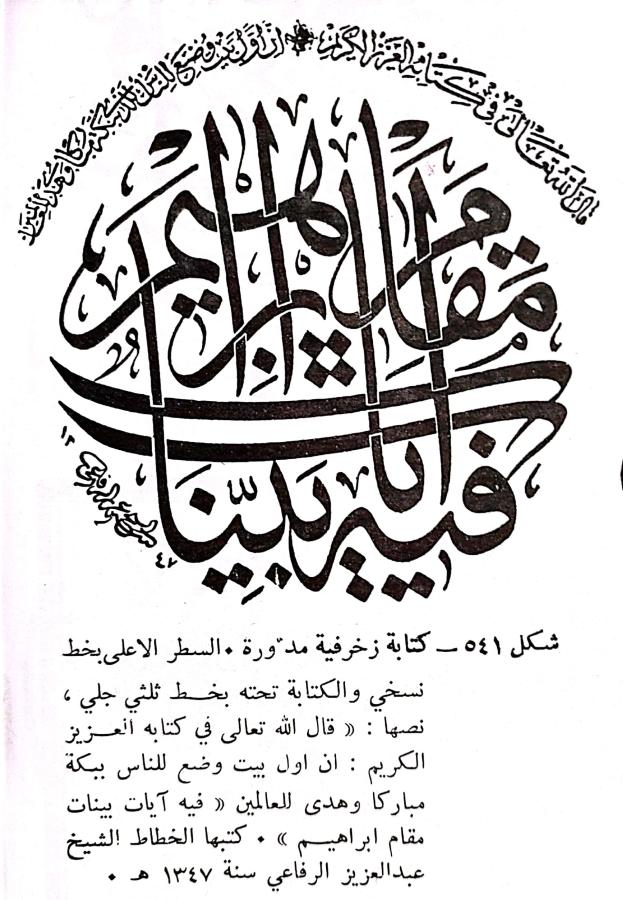 قال الله تعالى في كتابه العزيز الكريم ان اول بيت وضع للناس للذي ببكة مباركا وهدى للعالمين
فيه آيات بينات مقام ابراهيم
١٣
٤٧
شكل ٥٤١ – كتابة زخرفية مدورة . السطر الاعلى بخط
نسخي والكتابة تحته بخط ثلثي جلي ،
نصها : « قال الله تعالى في كتابه العـزيز
الكريم : ان اول بيت وضع للناس ببكة
مباركا وهدى للعالمين « فيه آيات بينات
مقام ابراهيـم » . كتبها الخطاط الشيخ
عبدالعزيز الرفاعي سنة ١٣٤٧ هـ .